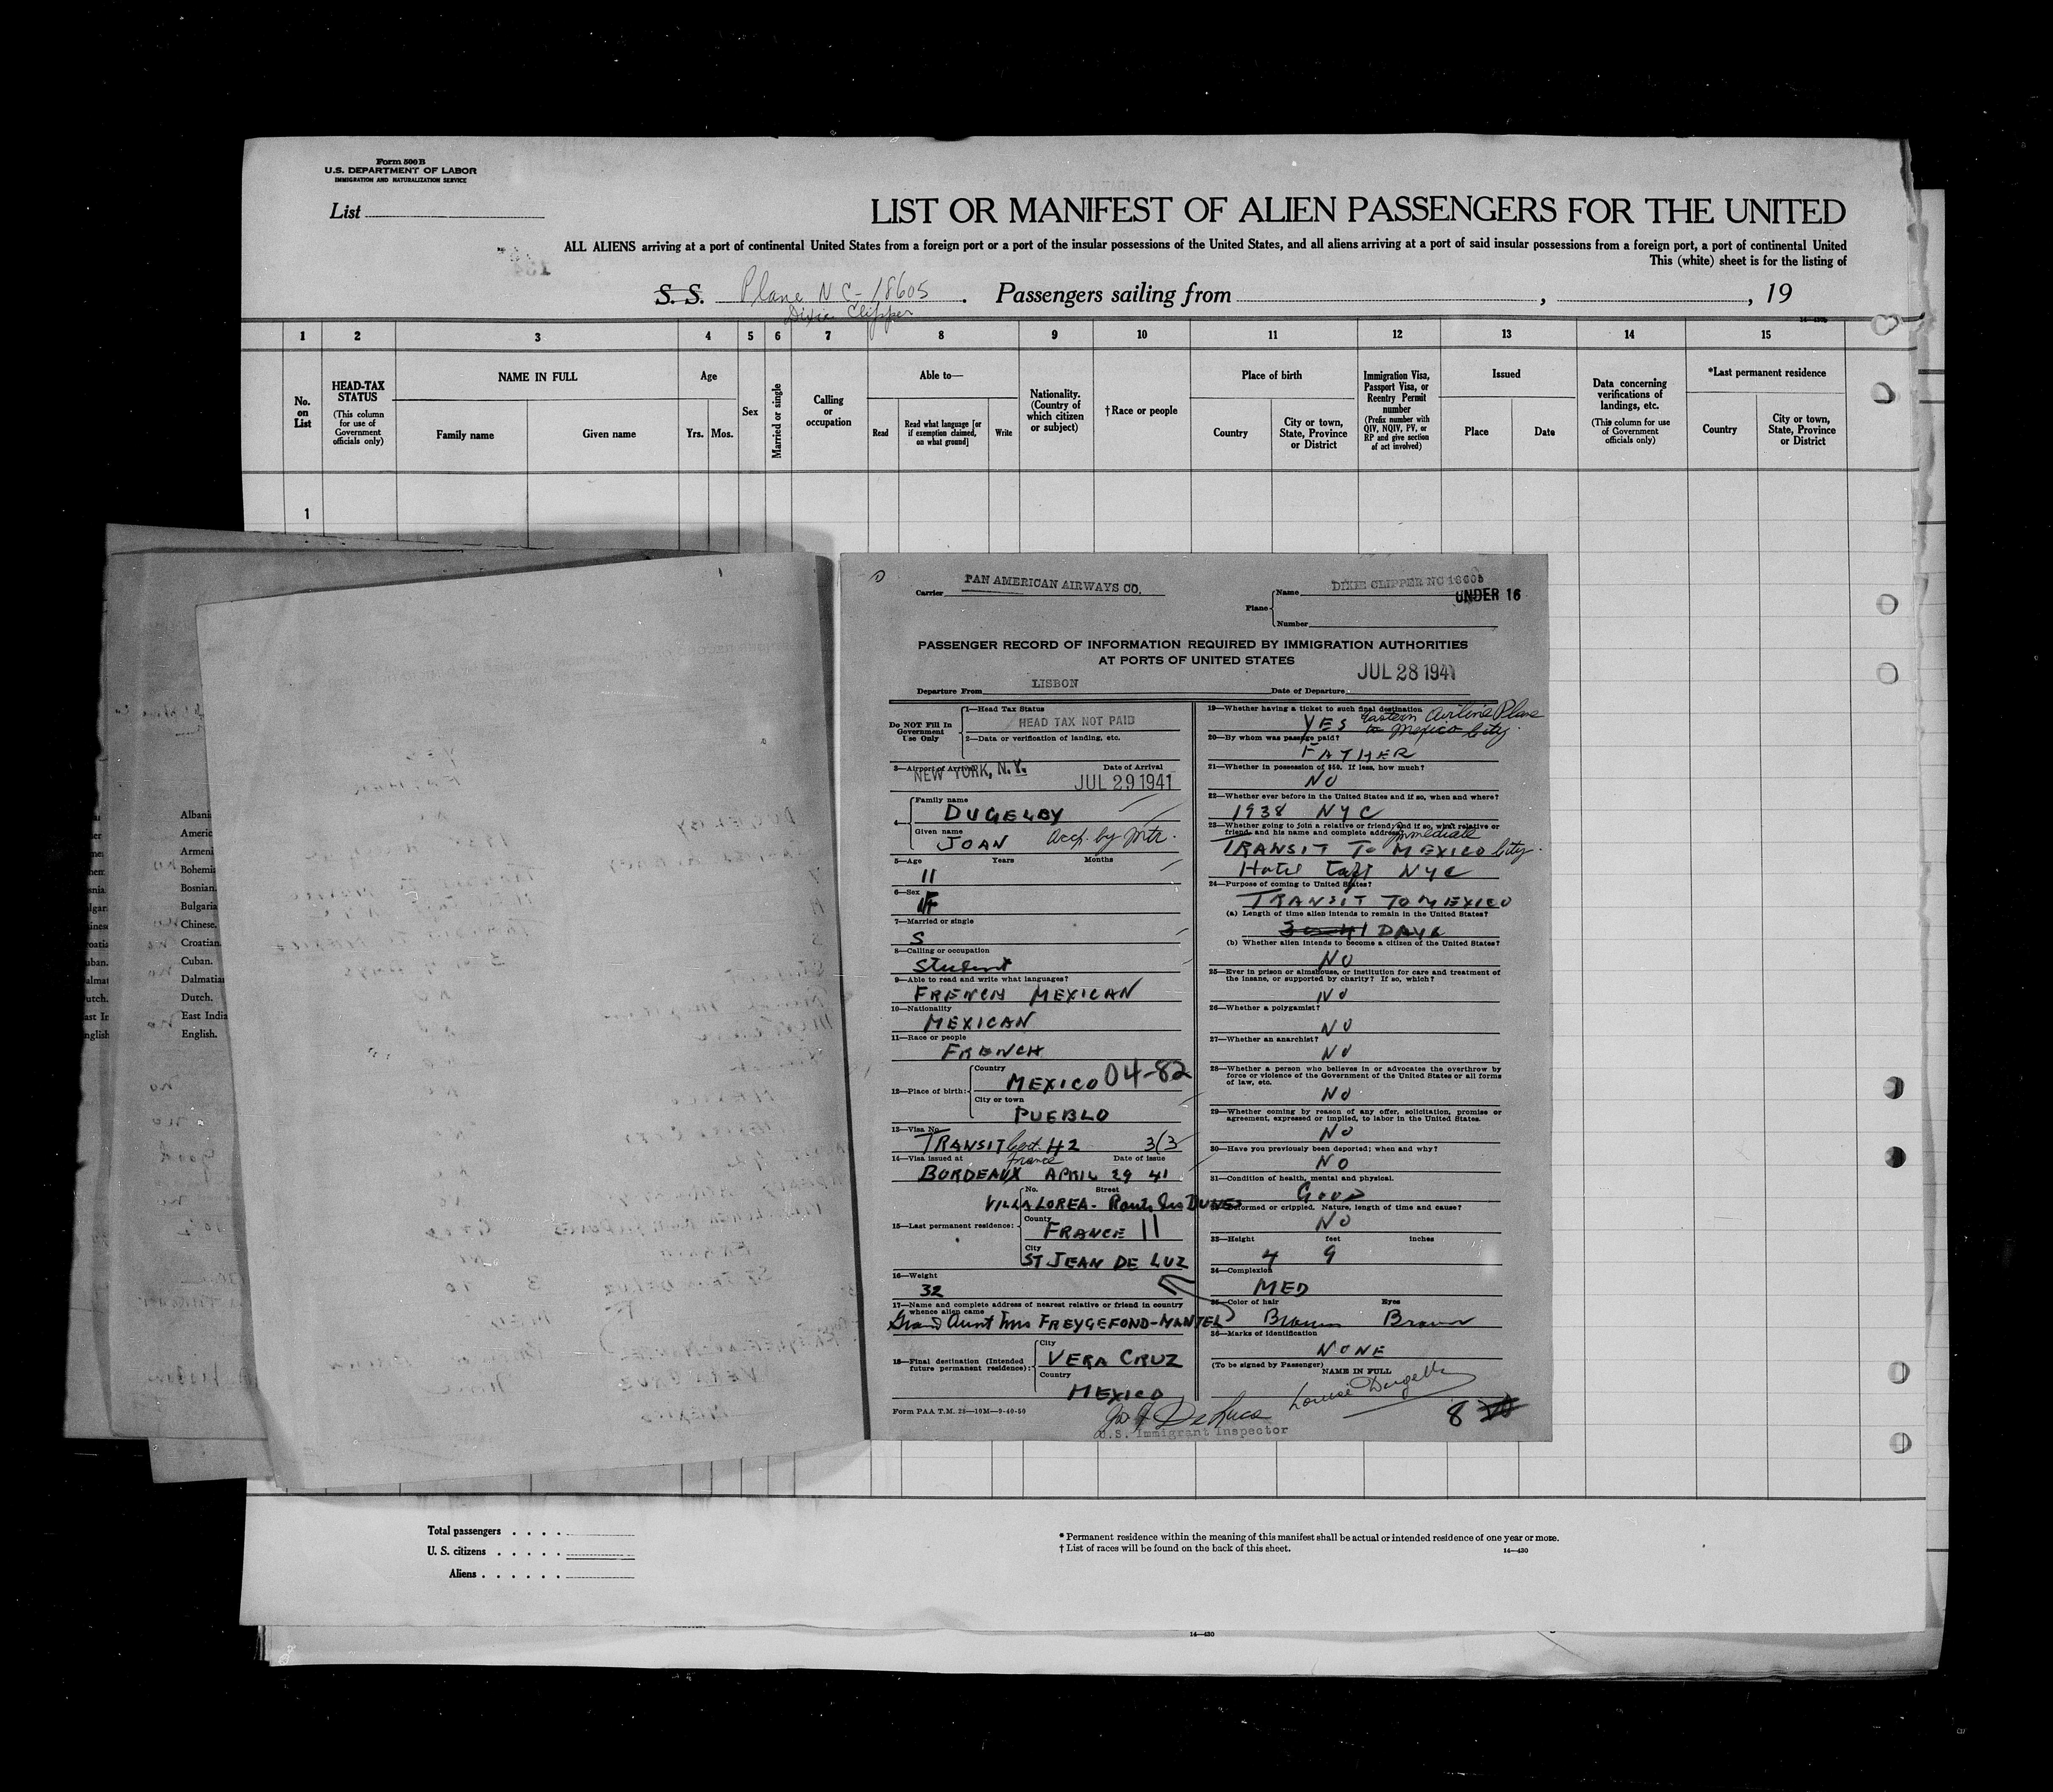 Form 500 B
U.S. DEPARTMENT OF LABOR
IMMIGRATION AND NATURALIZATION SERVICE
List
LIST OR MANIFEST OF ALIEN PASSENGERS FOR THE UNITED
ALL ALIENS arriving at a port of continental United States from a foreign port or a port of the insular possessions of the United States, and all aliens arriving at a port of said insular possessions from a foreign port, a port of continental United
This (white) sheet is for the listing of
S. S. Plane NC-18605 . Passengers sailing from , , 19
Dixie Clipper
1 2 3 4 5 6 7 8 9 10 11 12 13 14 15
No. on List
HEAD-TAX STATUS
(This column for use of Government officials only)
NAME IN FULL
Family name Given name
Age
Yrs. Mos.
Sex
Married or single
Calling or occupation
Able to—
Read
Read what language [or if exemption claimed, on what ground]
Write
Nationality. (Country of which citizen or subject)
† Race or people
Place of birth
Country
City or town, State, Province or District
Immigration Visa, Passport Visa, or Reentry Permit number
(Prefix number with QIV, NQIV, PV, or RP and give section of act involved)
Issued
Place Date
Data concerning verifications of landings, etc.
(This column for use of Government officials only)
*Last permanent residence
Country
City or town, State, Province or District
1
Chinese.
Cuban.
Dutch.
English.
PAN AMERICAN AIRWAYS CO.
Carrier
DIXIE CLIPPER NC 18605
Plane Name
UNDER 16
Number
PASSENGER RECORD OF INFORMATION REQUIRED BY IMMIGRATION AUTHORITIES
AT PORTS OF UNITED STATES
JUL 28 1941
Departure From LISBON Date of Departure
Do NOT Fill In Government Use Only
1—Head Tax Status
HEAD TAX NOT PAID
2—Data or verification of landing, etc.
3—Airport of Arrival Date of Arrival
NEW YORK, N.Y. JUL 29 1941
4— Family name
DUGELBY
Given name
JOAN Acc. by Mtr.
5—Age Years Months
11
6—Sex
F
7—Married or single
S
8—Calling or occupation
Student
9—Able to read and write what languages?
FRENCH MEXICAN
10—Nationality
MEXICAN
11—Race or people
FRENCH
12—Place of birth: Country
MEXICO 04-82
City or town
PUEBLO
13—Visa No.
TRANSIT Cert. 42 3(3
14—Visa issued at France Date of issue
BORDEAUX APRIL 29 41
No. Street
VILLA LOREA - Route des DUNES
15—Last permanent residence: County
FRANCE 11
City
ST JEAN DE LUZ
16—Weight
32
17—Name and complete address of nearest relative or friend in country
whence alien came
Grand Aunt Mrs FREYGEFOND-MANTEL
18—Final destination (Intended future permanent residence): City
VERA CRUZ
Country
MEXICO
Form PAA T.M. 28—10M—9-40-50
19—Whether having a ticket to such final destination
YES Eastern Airline Plane
to Mexico City.
20—By whom was passage paid?
FATHER
21—Whether in possession of $50. If less, how much?
NO
22—Whether ever before in the United States and if so, when and where?
1938 NYC
23—Whether going to join a relative or friend; and if so, what relative or
friend, and his name and complete address Immediate
TRANSIT TO MEXICO City.
Hotel Taft NYC
24—Purpose of coming to United States?
TRANSIT TO MEXICO
(a) Length of time alien intends to remain in the United States?
DAYS
(b) Whether alien intends to become a citizen of the United States?
NO
25—Ever in prison or almshouse, or institution for care and treatment of
the insane, or supported by charity? If so, which?
NO
26—Whether a polygamist?
NO
27—Whether an anarchist?
NO
28—Whether a person who believes in or advocates the overthrow by
force or violence of the Government of the United States or all forms
of law, etc.
NO
29—Whether coming by reason of any offer, solicitation, promise or
agreement, expressed or implied, to labor in the United States.
NO
30—Have you previously been deported; when and why?
NO
31—Condition of health, mental and physical.
GOOD
Deformed or crippled. Nature, length of time and cause?
NO
33—Height feet inches
4 9
34—Complexion
MED
35—Color of hair Eyes
Brown Brown
36—Marks of identification
NONE
(To be signed by Passenger)
NAME IN FULL
Louise Dugelby
8
Jos. F. DeLuca
U.S. Immigrant Inspector
Total passengers
U. S. citizens
Aliens
* Permanent residence within the meaning of this manifest shall be actual or intended residence of one year or more.
† List of races will be found on the back of this sheet.
14—430
14—430